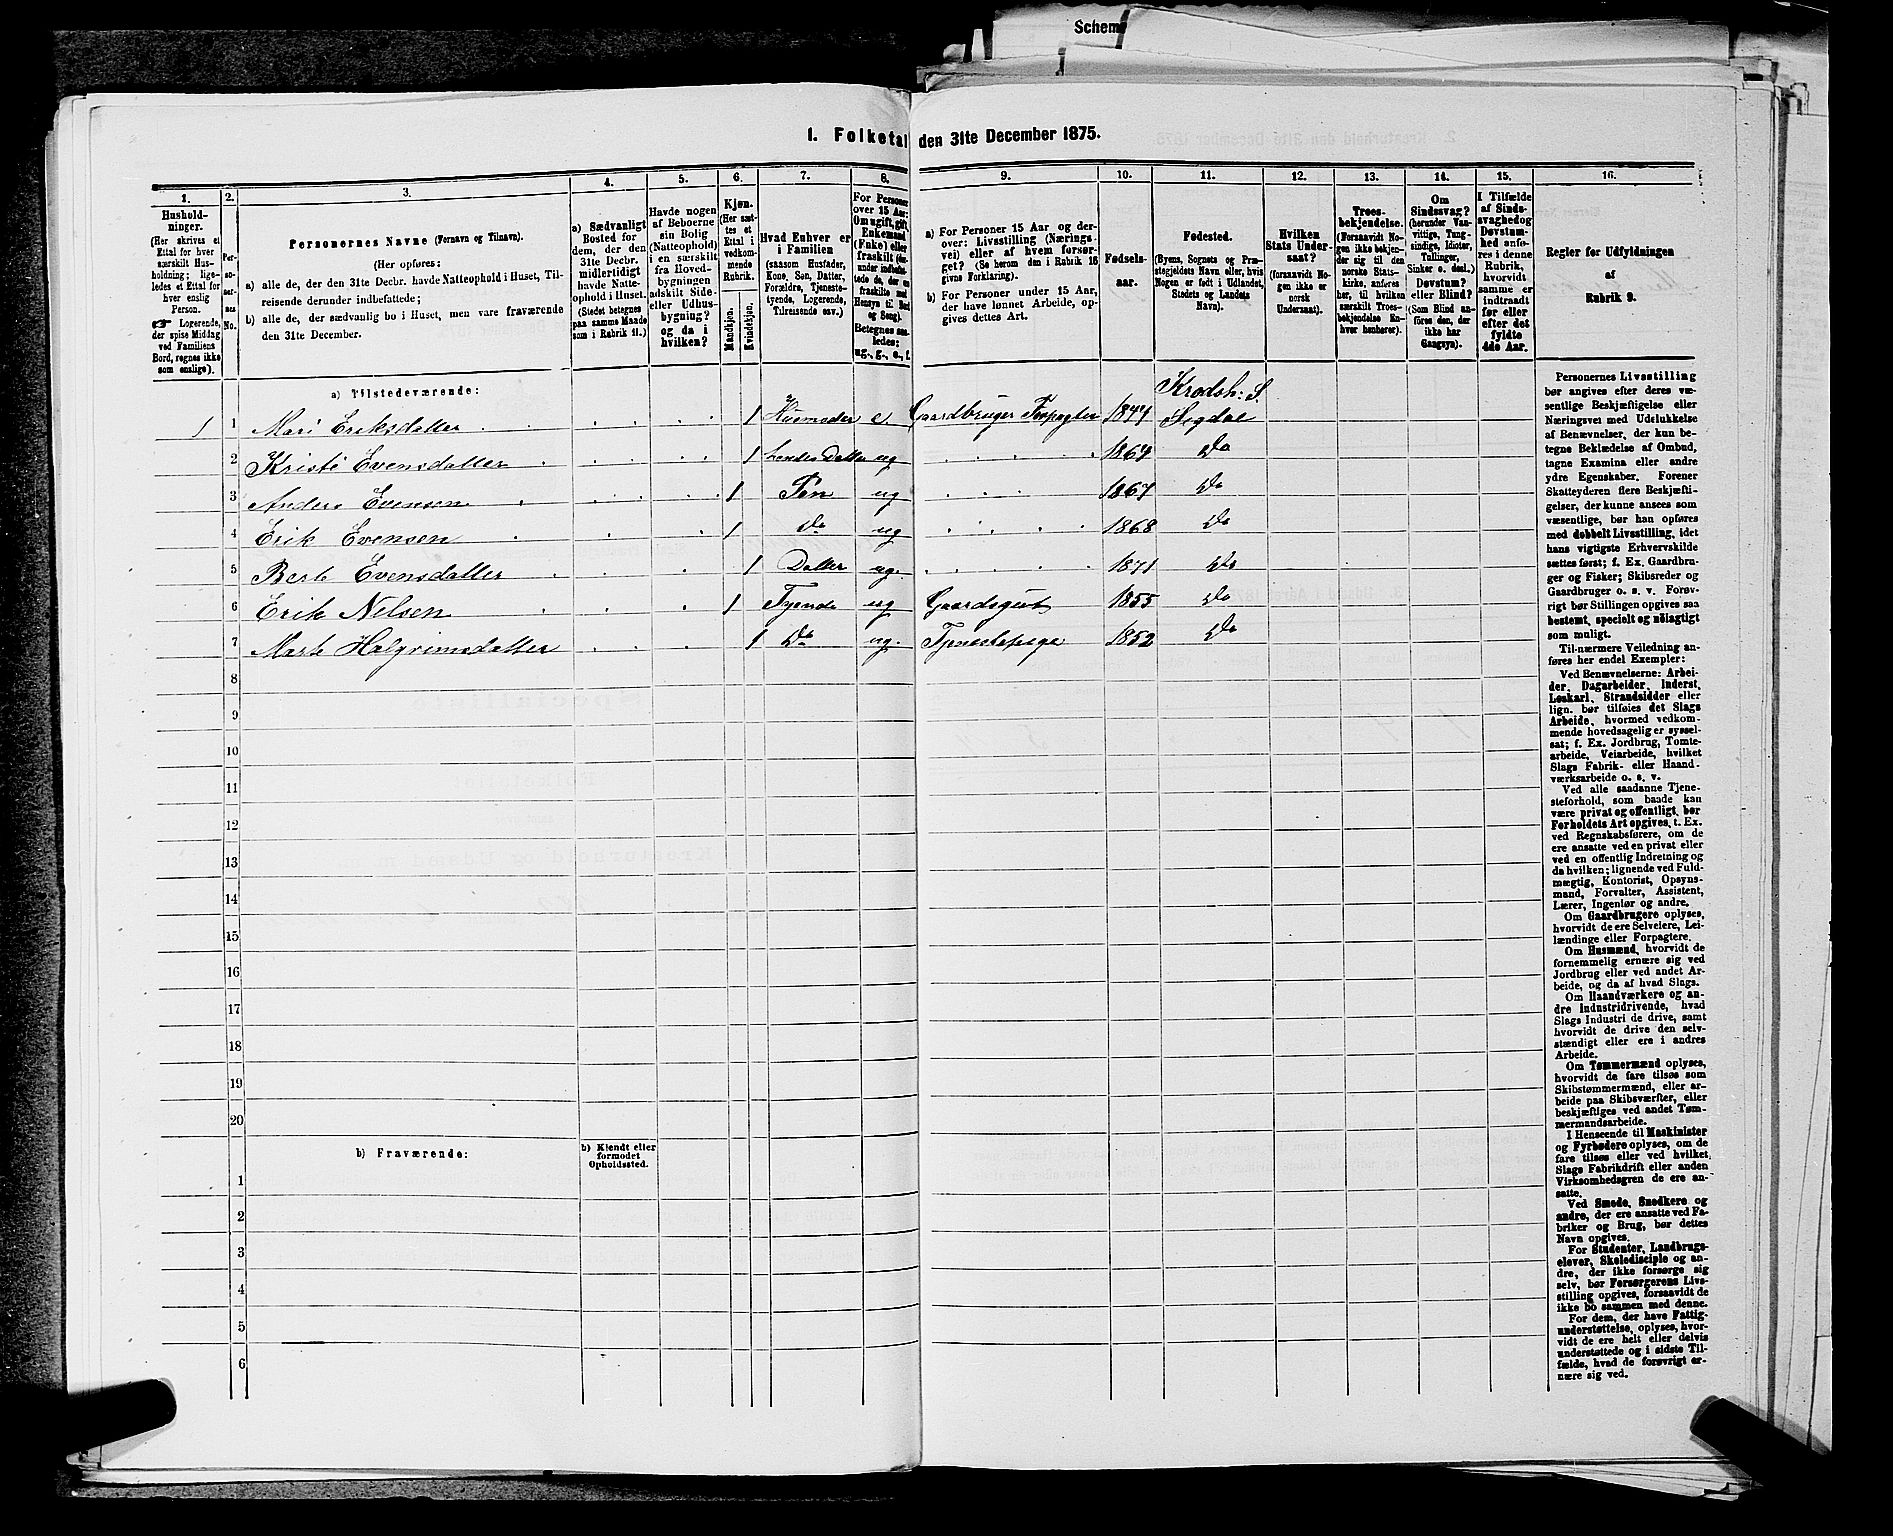 Schem
1. Folketal den 31te December 1875.
1.
Hushold-
ninger.
(Her skrives et
Ettal for hver
særskilt Hus-
holdning; lige-
ledes et Ettal for
hver enslig
Person.
☞ Logerende,
der spise Middag
ved Familiens
Bord, regnes ikke
som enslige).
2.
Per-
so-
ner-
nes
No.
3.
Personernes Navne (Fornavn og Tilnavn).
(Her opføres:
a) alle de, der den 31te Decbr. havde Natteophold i Huset, Til-
reisende derunder indbefattede;
b) alle de, der sædvanlig bo i Huset, men vare fraværende
den 31te December.
4.
a) Sædvanligt
Bosted for
dem, der den
31te Decbr.
midlertidigt
havde Natte-
ophold i Huset.
(Stedet betegnes
paa samme Maade
som i Rubrik 11.)
5.
Havde nogen
af Beboerne
sin Bolig
(Natteophold)
i en særskilt
fra Hoved-
bygningen
adskilt Side-
eller Udhus-
bygning?
og da i
hvilken?
6.
Kjøn.
(Her sæt-
tes et
Ettal i
vedkom-
mende
Rubrik.
Mandkjøn.
Kvindekjøn.
7.
Hvad Enhver er
i Familien
(saasom Husfader,
Kone, Søn, Datter,
Forældre, Tjeneste-
tyende, Logerende,
Tilreisende osv.)
8.
For Personer
over 15 Aar:
Om ugift, gift,
Enkemand
(Enke) eller
fraskilt
Betegnes saa-
ledes:
ug., g., e., f.
9.
a) For Personer 15 Aar og der-
over: Livsstilling (Nærings-
vei) eller af hvem forsør-
get? (Se herom den i Rubrik 16
givne Forklaring).
b) For Personer under 15 Aar,
der have lønnet Arbeide, op-
gives dettes Art.
10.
Fødsels-
aar.
11.
Fødested.
(Byens, Sognets og Præ-
stegjeldets Navn eller, hvis
Nogen er født i Udlandet,
Stedets og Landets
Navn).
12.
Hvilken
Stats Under-
saat?
(forsaavidt No-
gen ikke er
norsk
Undersaat).
13.
Troes-
bekjendelse.
(Forsaavidt No-
gen ikke bekjen-
der sig til den
norske Stats-
kirke, anføres
her, til hvilken
særskilt Troes-
bekjendelse En-
hver henhører).
14.
Om
Sindssvag?
(herunder Van-
vittige, Tung-
sindige, Idioter,
Tullinger,
Sinker o. desl.)
Døvstum?
eller Blind?
(Som Blind an-
føres den, der
ikke har
Gangsyn).
15.
I Tilfælde
af Sinds-
svaghed og
Døvstum-
hed anfø-
res i denne
Rubrik,
hvorvidt
samme er
indtraadt
før eller
efter det
fyldte
4de Aar.
16.
Regler for Udfyldningen
af
Rubrik 9.
a) Tilstedeværende:
Krodsh: S.
1 1 Mari Eriksdatter 1 Husmoder e. Gaardbruger Forpagter Sigdal
2 Kristi Evensdatter 1 Datter ug Do
3 Anders Evensen 1 Søn ug 1867 Do
4 Erik Evensen 1 Do ug 1868 Do
5 Berte Evensdatter 1 Datter ug. 1871 Do
6 Erik Nelsen 1 Tyende ug Gaardsgut 1855 Do
7 Marte Halgrimsdatter 1 Do ug. Tjenestepige 1852 Do
8
9
10
11
12
13
14
15
16
17
18
19
20
b) Fraværende:
b) Kjendt eller
formodet
Opholdssted.
1
2
3
4
5
6
Personernes Livsstilling
bør angives efter deres væ-
sentlige Beskjæftigelse eller
Næringsvei med Udelukkelse
af Benævnelser, der kun be-
tegne Beklædelse af Ombud,
tagne Examina eller andre
ydre Egenskaber. Forener
Skatteyderen flere Beskjæfti-
gelser, der kunne ansees som
væsentlige, bør han opføres
med dobbelt Livsstilling, idet
hans vigtigste Erhvervskilde
sættes først; f. Ex. Gaardbru-
ger og Fisker; Skibsreder og
Gaardbruger o. s. v. Forøv-
rigt bør Stillingen opgives saa
bestemt, specielt og nöiagtigt
som muligt.
Til nærmere Veiledning an-
føres her endel Exempler:
Ved Benævnelserne: Arbei-
der, Dagarbeider, Inderst,
Løskarl, Strandsidder eller
lign. bør tilføies det Slags
Arbeide, hvormed vedkom-
mende hovedsagelig er syssel-
sat; f. Ex. Jordbrug, Tomte-
arbeide, Veiarbeide, hvilket
Slags Fabrik- eller Haand-
værksarbeide o. s. v.
Ved alle saadanne Tjene-
steforhold, som baade kan
være privat og offentligt, bør
Forholdets Art opgives, t. Ex.
ved Regnskabsførere, om de
ere ansatte ved en privat eller
ved en offentlig Indretning og
da hvilken; lignende ved Fuld-
mægtig, Kontorist, Opsyns-
mand, Forvalter, Assistent,
Lærer, Ingeniør og andre.
Om Gaardbrugere oplyses,
hvorvidt de ere Selveiere, Lei-
lændinge eller Forpagtere.
Om Husmænd, hvorvidt de
fornemmelig ernære sig ved
Jordbrug eller ved andet Ar-
beide, og da af hvad Slags.
Om Haandværkere og an-
dre Industridrivende, hvad
Slags Industri de drive, samt
hvorvidt de drive den selv-
stændigt eller ere i andres
Arbeide.
Om Tømmermænd oplyses,
hvorvidt de fare tilsøs som
Skibstømmermænd, eller ar-
beide paa Skibsværfter, eller
beskjæftiges ved andet Tøm-
mermandsarbeide.
I Henseende til Maskinister
og Fyrbødere oplyses, om de
fare tilsøs eller ved hvilket
Slags Fabrikdrift eller anden
Virksomhedsgren de ere an-
satte.
Ved Smede, Snedkere og
andre, der ere ansatte ved Fa-
briker og Brug, bør dettes
Navn opgives.
For Studenter, Landbrugs-
elever, Skoledisciple og an-
dre, der ikke forsørge sig
selv, bør Forsørgerens Livs-
stilling opgives, forsaavidt de
ikke bo sammen med denne.
For dem, der have Fattig-
understøttelse, oplyses, hvor-
vidt de ere helt eller delvis
understøttede og i sidste Til-
fælde, hvad de forøvrigt er-
nære sig ved.